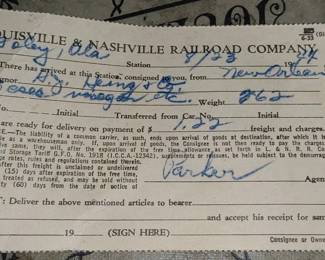 OUISVILLE & NASHVILLE RAILROAD COMPANY
6-33
Foley, Ala Station 8/23 19
There has arrived at this Station, consigned to you, from New Orleans
gnor & Co.
etc. Weight 262
Initial Transferred from Car No. Initial
are ready for delivery on payment of $ 1.22 freight and charges.
TE.—The liability of a common carrier, as such, ends upon arrival of goods at destination, after which it is
as a warehouseman only. If, upon arrival of goods, the Consignee is not then ready to pay the charges
ve the same, they will, after the expiration of the free time allowance, as set forth in L. & N. R. R. Co.
d Storage Tariff G.F.O. No. 1918 (I.C.C.A-12342), supplements, or reissues, be held subject to the demurrage
age rates, rules and regulations contained therein.
fter this freight is unclaimed or undelivered
(15) days after expiration of free time,
treated as refused, and may be sold without
ty (60) days from the date of notice of
Parker Agen
T: Deliver the above mentioned articles to bearer
and accept his receipt for sam
19 (SIGN HERE)
Consignee or Owne